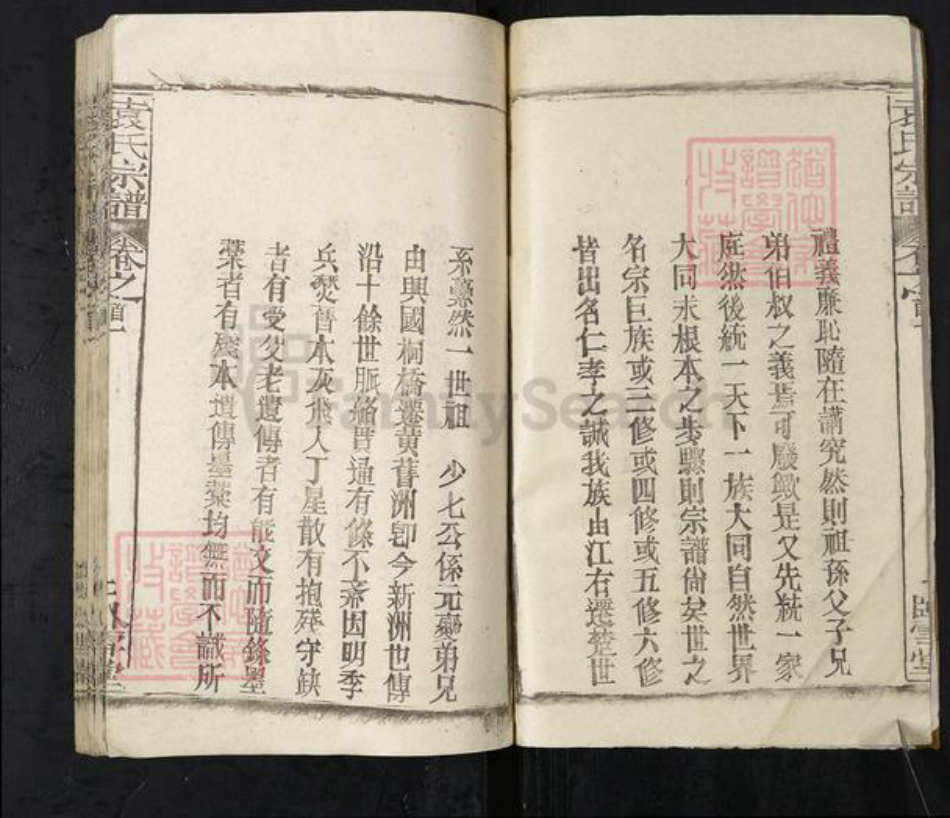 袁氏宗譜
卷之首
臥雪堂
禮義廉恥隨在講究然則祖孫父子兄
弟伯叔之義焉可廢歟是又先統一家
庭然後統一天下一族大同自然世界
大同求根本之步驟則宗譜尚矣世之
名宗巨族或三修或四修或五修六修
皆出名仁孝之誠我族由江右遷楚世
系藁然一世祖 少七公係元勳弟兄
由興國桐橋遷黃蓍洲卽今新洲也傳
沿十餘世脈絡貫通有條不紊因明季
兵燹普本灰飛人丁星散有抱殘守缺
者有受父老遺傳者有能文而隨錄墨
藁者有殘本遺傳墨藁均無而不識所
袁氏宗譜
卷之首一
臥雪堂
FamilySearch